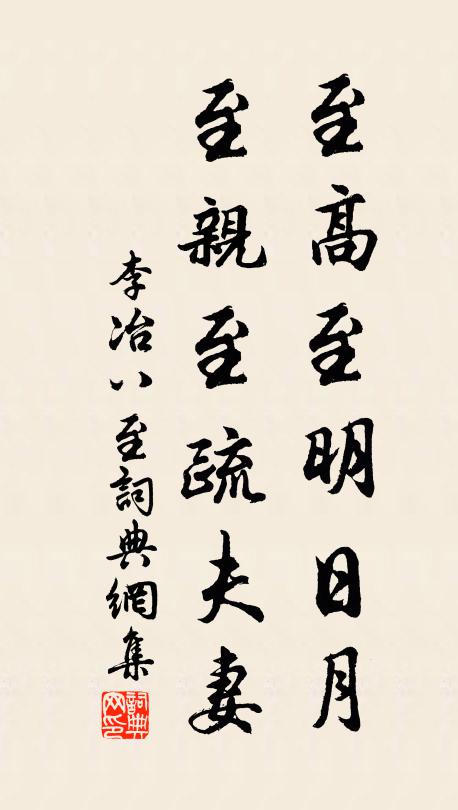 至高至明日月
至親至疏夫妻
李冶八至詞典網集
詞典網印